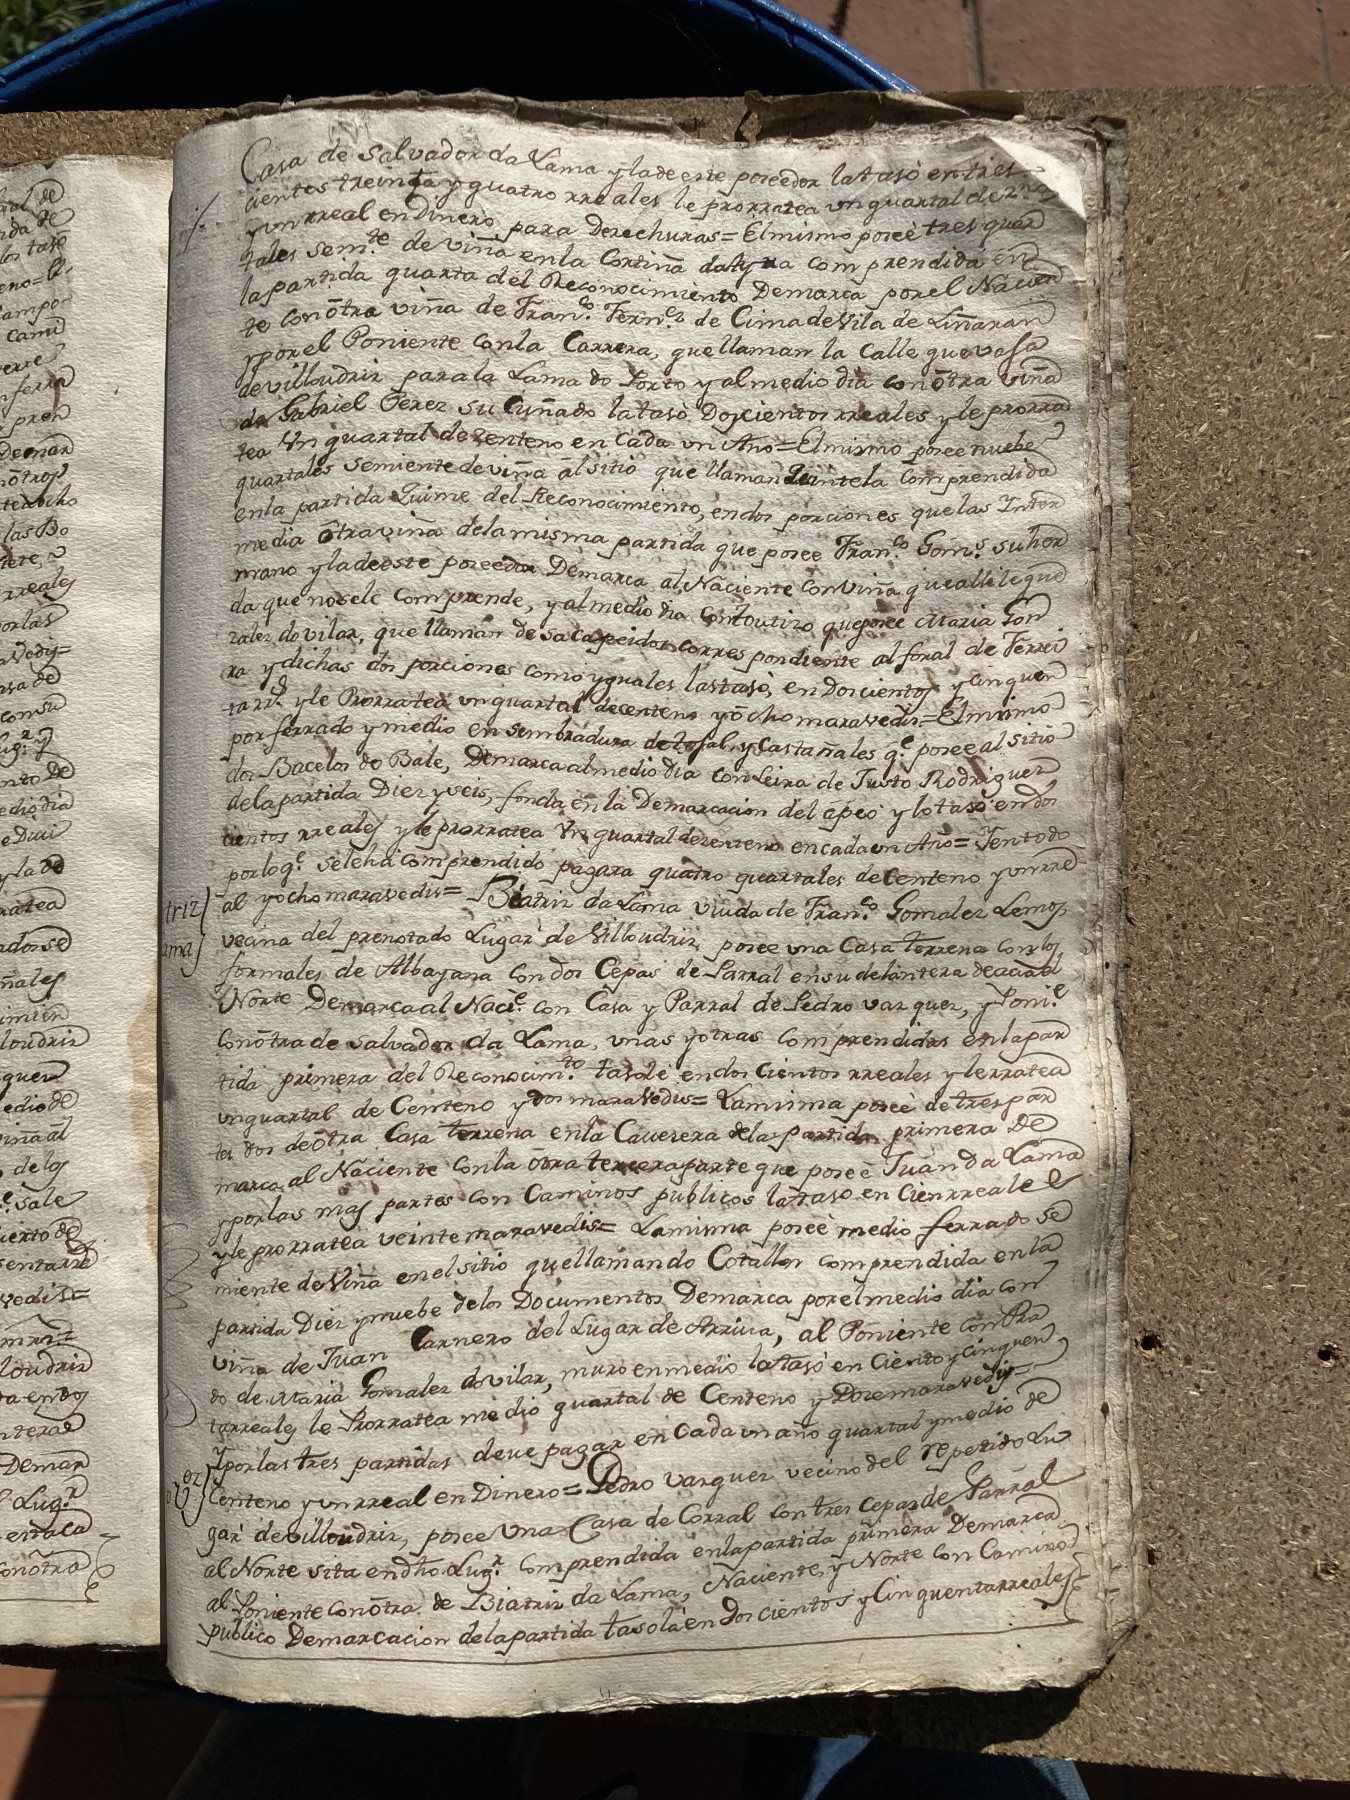 Casa de Salvador da Lama y la de este poseedor la taso en tres
cientos treinta y quatro rreales le prorratea un quartal de
y un rreal en Dinero para Derechuras = El mismo poseè tres quar
tales semte de viña en la Cortiña da comprendida en
la partida quarta del Reconocimiento Demarca por el Nacien
te con ôtra viña de Franco. Fernez de Cima de Vila de Liñaran
y por el Poniente con la Carrera, que llaman la Calle que va
de villoudriz para la Lama do Porto y al medio dia con ôtra viña
de Gabriel Perez su Cuñado la taso Doscientos rreales y le prorra
tea Un quartal de zenteno en Cada un Año = El mismo posee nuebe
quartales semiente de viña al sitio que llaman quintela Comprendida
en la partida quime del Reconocimiento, en dos porciones que las Inter
media ôtra viña de la misma partida que posee Franco. Goms. su her
mano y la de este poseedor Demarca al Naciente con viña que alli le que
da que no se le Comprende, y al medio dia con soutiro que posee Maria Gon
zalez do vilar, que llaman de sacapeidos correspondiente al foral de Ferrei
ra y dichas dos porciones como yguales las tasò, en Doscientos y cinquen
ta rrs. y le Prorratea un quartal de centeno y ocho maravedis = El mismo
por ferrado y medio en sembradura de tojal, y Castañales qe. posee al sitio
dos Bacelos do Bale, Demarca al medio dia con Leira de Justo Rodriguez
de la partida Diez y seis, fonda en la Demarcacion del ápeo y lo tasó en dos
cientos rreales y le prorratea Un quartal de zenteno en cada un Año = Y en todo
por lo qe. se le ha comprendido pagara quatro quartales de Centeno y un rre
al y ocho maravedis = Biatriz da Lama viuda de Franco. Gomalez Lemos
vecina del prenotado Lugar de Villoudriz, posee una Casa terrena con los
formales de Albayana con dos Cepas de Parral en su delantera deacia el
Norte Demarca al Nacie. con Casa y Parral de Pedro varquez, y Ponie.
con ôtra de Salvador da Lama, unas y otras comprendidas en la par
tida primera del Reconocimto. tasole en dos Cientos rreales y le rratea
un quartal de Centeno y dos maravedis = La misma poseé de tres par
tes dos de ôtra Casa terrena en la Cauecera de la partida primera De
marca al Naciente con la ôtra tercera parte que poseé Juan da Lama
y por las mas partes con Caminos publicos la taso en Cien rreales
y le prorratea veinte maravedis = La misma poseé medio ferrado se
miente de Viña en el sitio que llaman do Cotallon comprendida en la
partida Diez y nuebe de los Documentos Demarca por el medio dia con
viña de Juan Carnero del Lugar de Arriua, al Poniente con Pra
do de Maria Gomalez do vilar, muro en medio la taso en Ciento y Cinquen
ta rreales le Prorratea medio quartal de Centeno y Doce maravedis =
Y por las tres partidas deue pagar en Cada un año quartal y medio de
Centeno y un rreal en Dinero = Pedro varquez vecino del repetido Lu
gar de villoudriz, posee Una Casa de Corral con tres Cepas de Parral
al Norte sita en dho Lugr. comprendida en la partida primera Demarca
al Poniente con ôtra de Biatriz da Lama, Naciente, y Norte con Camino
publico Demarcacion de la partida tasola en doscientos y Cinquenta rreales